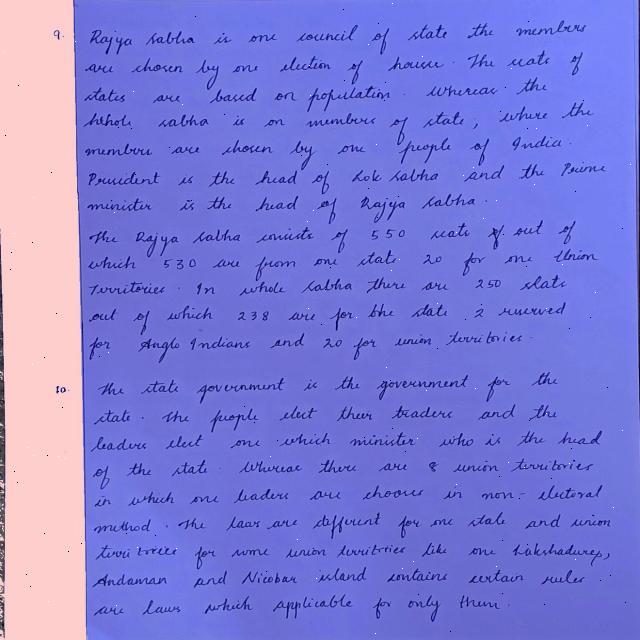 9. Rajya sabha is one council of state the members
are chosen by one election of houise. The seats of
states are based on population. Whereas the
whole sabha is on members of state, where the
members are chosen by one people of India.
President is the head of Lok sabha and the Prime
minister is the head of Rajya sabha.
The Rajya sabha consists of 550 seats of out of
which 530 are from one state 20 for one Union
Territories. In whole sabha there are 250 slats
out of which 238 are for the state 2 reserved
for Anglo Indians and 20 for union territories.
10. The state government is the government for the
state. The people elect their traders and the
leaders elect one which minister who is the head
of the state. Whereas there are 8 union territories
in which one leaders are chooses in non-electoral
method. The laws are different for one state and union
territories for some union territories like one Lakshadweep,
Andaman and Nicobar island contains certain rules
are laws which applicable for only them.